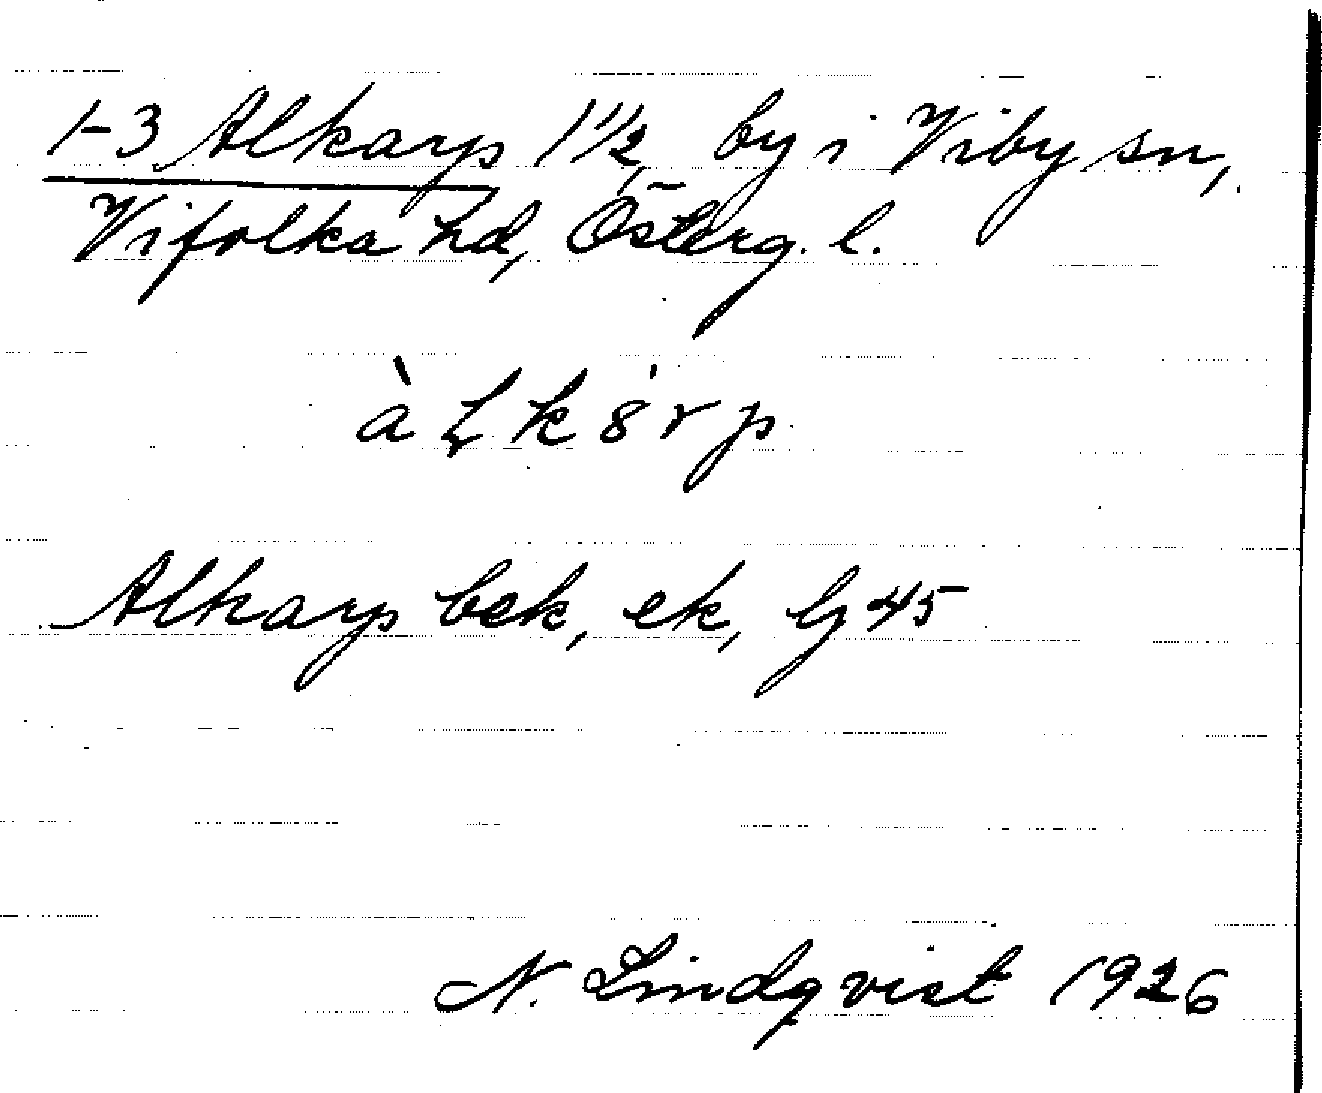 1-3 Alkarp 1 1/2, by i Viby sn,
Vifolka hd, Österg. l.
àɫk8̍rp
Alkarp bek, ek, lj 45
N. Lindqvist 1926